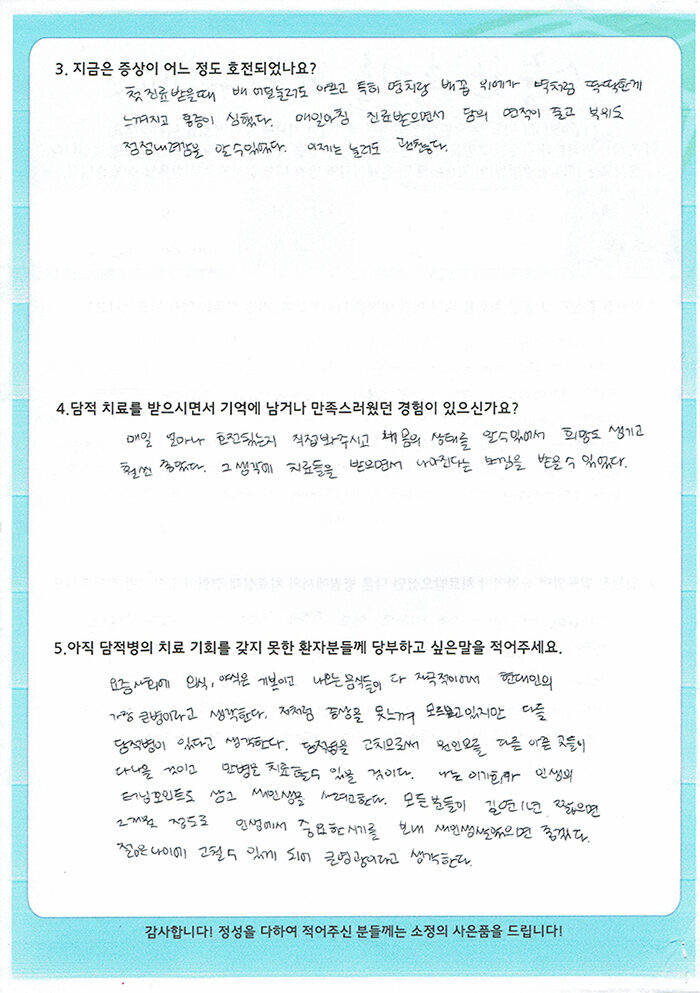 3. 지금은 증상이 어느 정도 호전되었나요?
첫 진료받을때 배 어딜눌러도 아프고 특히 명치랑 배꼽 위에가 벽처럼 딱딱하게
느껴지고 통증이 심했다. 매일아침 진료받으면서 담의 면적이 줄고 부위도
점점내려감을 알 수 있었다. 이제는 눌러도 괜찮다.
4.담적 치료를 받으시면서 기억에 남거나 만족스러웠던 경험이 있으신가요?
매일 얼마나 호전됐는지 직접봐주시고 몸의 상태를 알 수 있어서 희망도 생기고
훨씬 좋았다. 그 생각에 치료들을 받으면서 나아진다는 느낌을 받을 수 있었다.
5.아직 담적병의 치료 기회를 갖지 못한 환자분들께 당부하고 싶은말을 적어주세요.
요즘사회에 외식, 야식은 기본이고 나오는 음식들이 다 자극적이어서 현대인의
가장 큰병이라고 생각한다. 저처럼 증상을 못느껴 모르고있지만 다들
담적병이 있다고 생각한다. 담적병을 고치므로써 원인모를 다른 아픈 곳들이
다나을 것이고 만병을 치료할수 있을 것이다. 나는 이기회가 인생의
터닝포인트로 삼고 새인생을 사려고한다. 모든분들이 길면1년 짧으면
2개월 정도로 인생에서 중요한시기를 보내 새인생살았으면 좋겠다.
젊은나이에 고칠 수 있게 되어 큰영광이라고 생각한다.
감사합니다! 정성을 다하여 적어주신 분들께는 소정의 사은품을 드립니다!